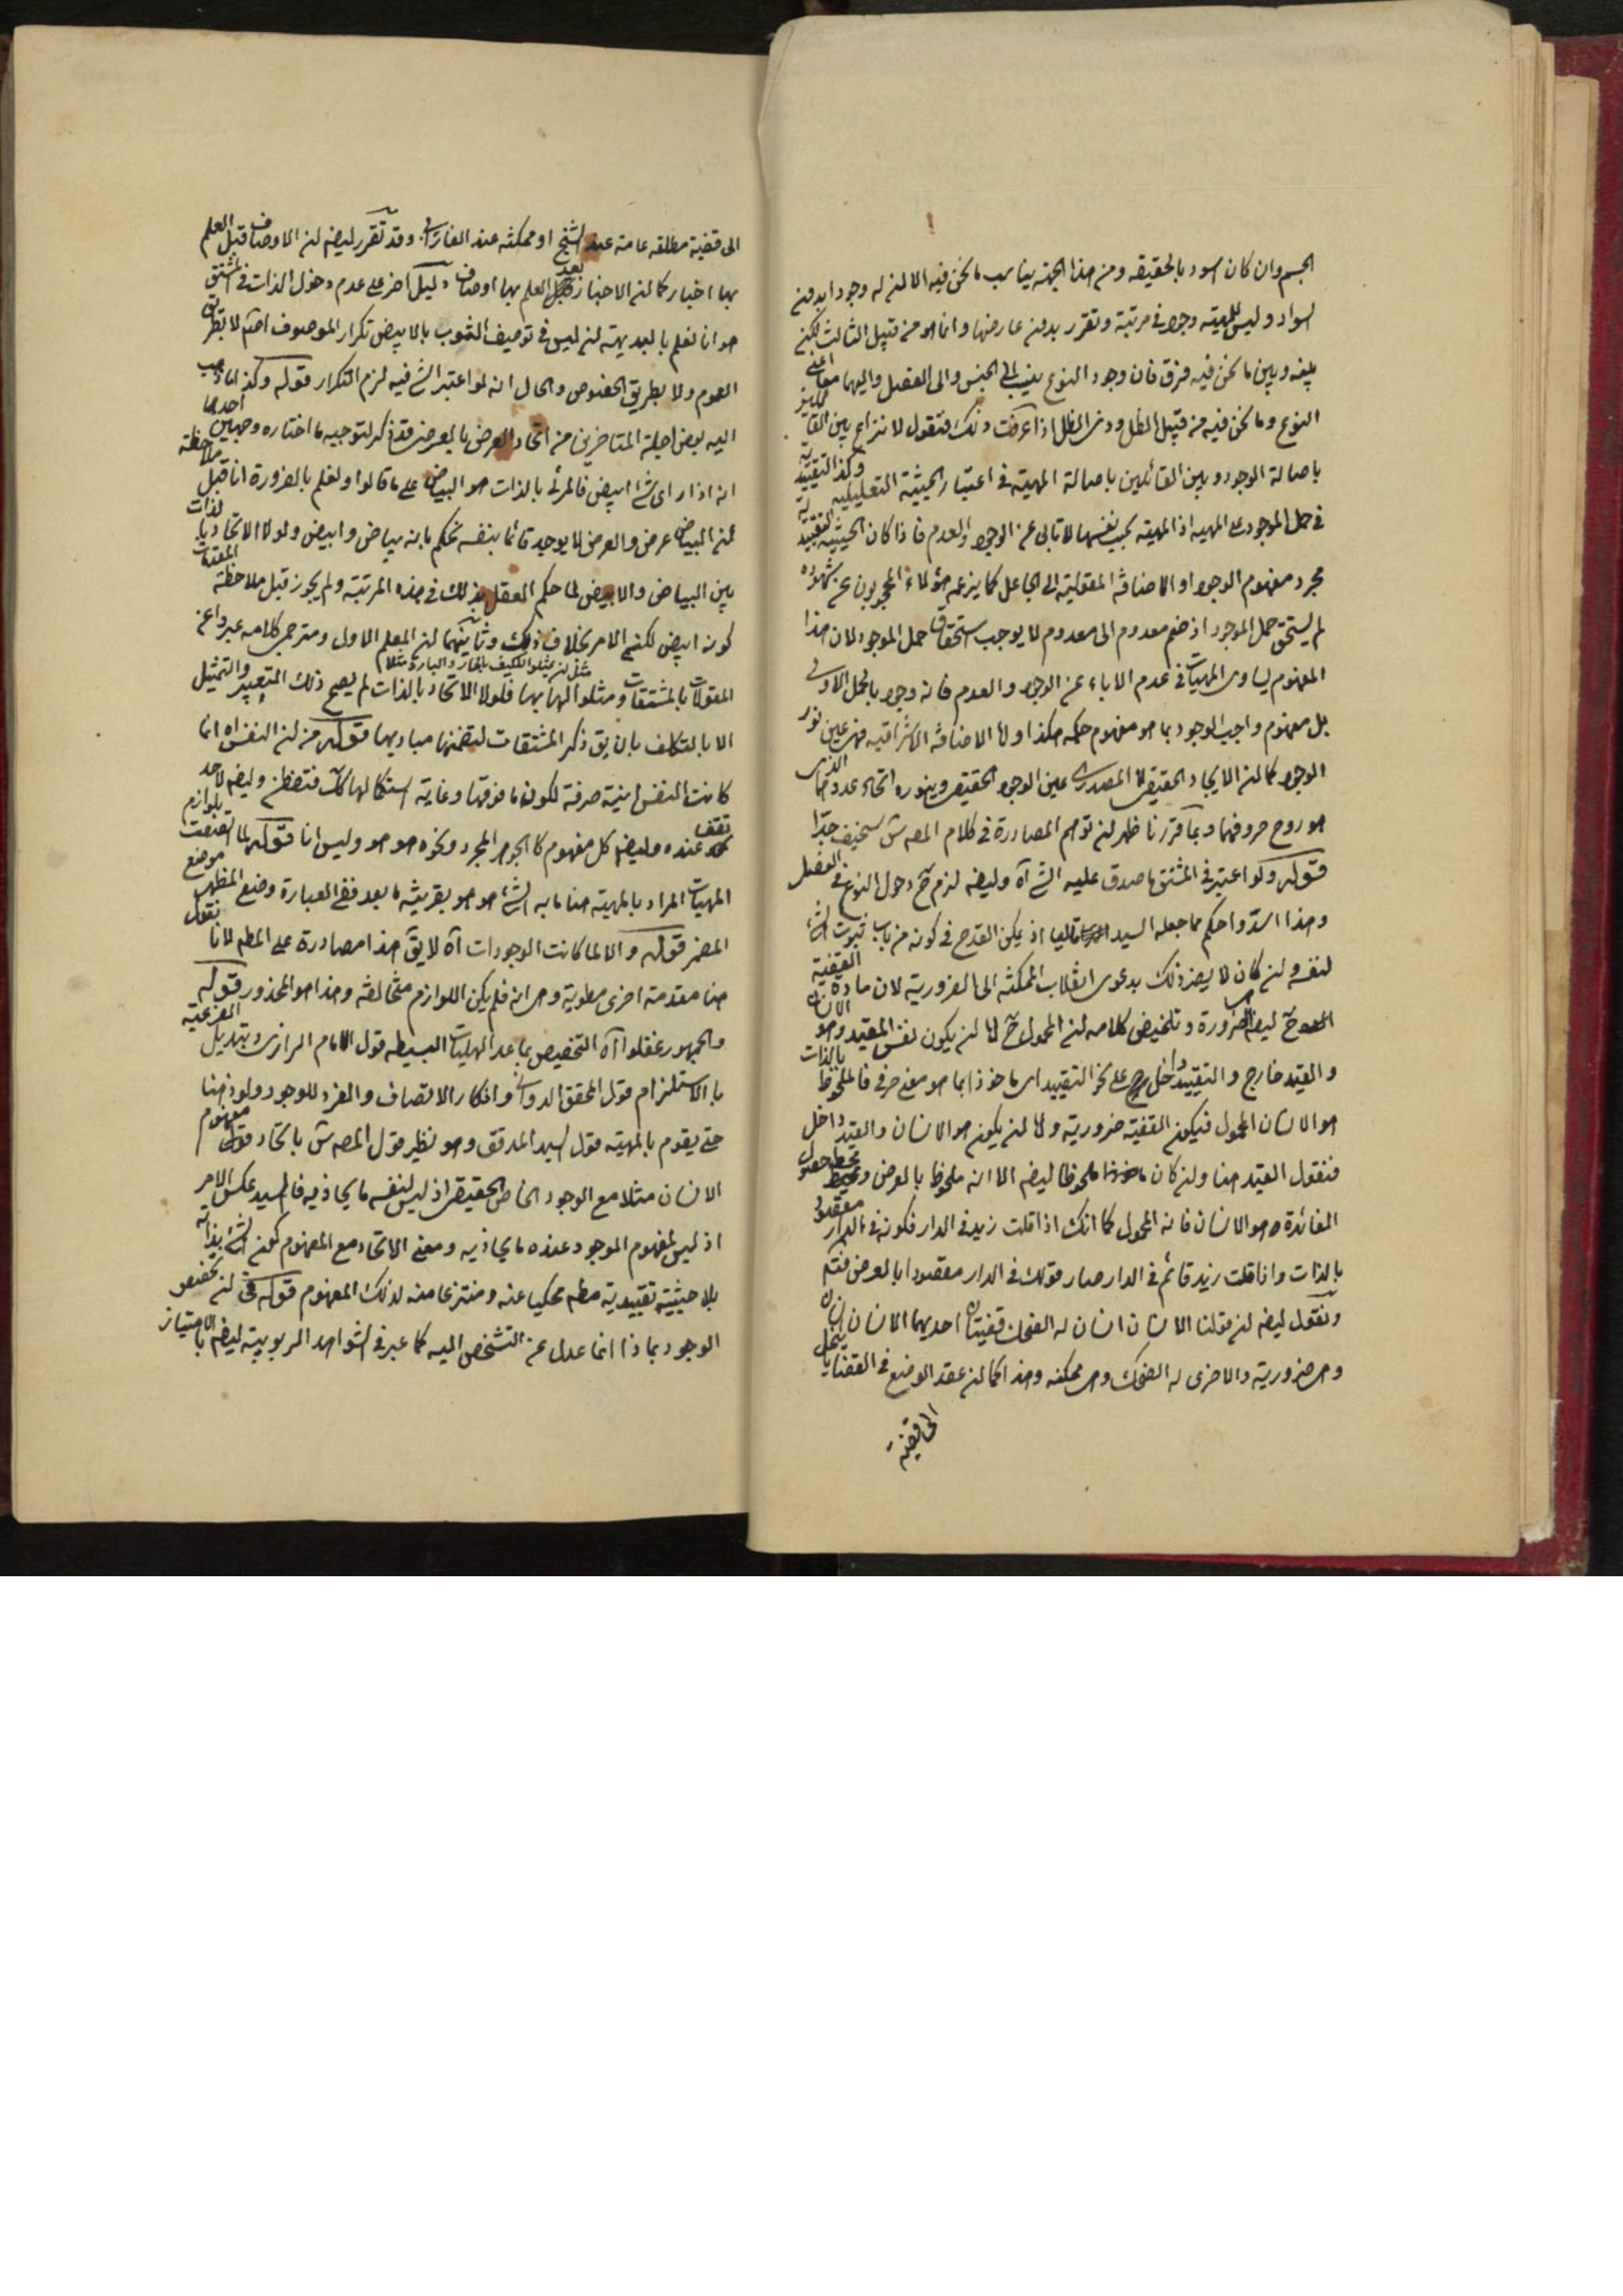 الجسم وان كان اسود بالحقيقه ومن هذا الجهته يناسب ما نحن فيه الا ان له وجودا بدون
السواد وليس للمهيته وجود فى مرتبة وتقرر بدون عارضها وانما هو من قبيل الثالث لكن
بينه وبين ما نحن فيه فرق فان وجود النوع ينسب الى الجنس والى الفصل واليهما معا اعنى
النوع وما نحن فيه من قبيل الظل وذى الظل اذا عرفت ذلك فنقول لا نزاع بين القائلين
باصالة الوجود وبين القائلين باصالة المهية فى اعتبار الحيثية التعليليه وكذا التقييدية
فى حمل الموجود على المهيه اذ المهية بحسب نفسها لا تابى عن الوجود والعدم فاذا كان الحيثيه التقييدية
مجرد مفهوم الوجود او الاضافة المقولية الى الجاعل كما يزعمه هؤلاء المحجوبون عن شهوده
لم يستحق حمل الموجود اذ ضم معدوم الى معدوم لا يوجب استحقاق حمل الموجود لان هذا
المفهوم يساوى المهيات فى عدم الاباء عن الوجود والعدم فانه وجود بالحمل الاولى
بل مفهوم واجب الوجود بما هو مفهوم حكمه هكذا واما الاضافة الاشراقيه فهى عين نور
الوجود كما ان الايجاد الحقيقى لا المصدرى عين الوجود الحقيقى وبنوره اتحاد عدد قما الذى
هو روح حروفها وبما قررنا ظهر ان توهم المصادرة فى كلام المصه ش سخيف جدا
قوله ولو اعتبر فى المشتق ما صدق عليه الشئ آه وليضه لزم ح دخول النوع فى الفصل
وهذا اسد واحكم مما جعله السيد تاليا اذ يمكن القدح فى كونه من باب ثبوت الشئ
لنفسه وان كان لا يضر ذلك بدعوى انقلاب الممكنه الى الضرورية لان مادة القضية
ح ليضه الضرورة وتلخيص كلامه ان المحمول ح اما ان يكون نفس المقيد وهو الانسان
والقيد خارج والتقييد داخل على نحو التقييد اى ماخوذا بما هو معنى حرفى فالملحوظ بالذات
هو الانسان المحمول فيكون القضية ضرورية واما ان يكون هو الانسان والقيد داخل
فنقول القيد هنا وان كان ملحوظا ليضه الا انه ملحوظ بالعرض ومحط حصول
الفائدة هو الانسان فانه المحمول كما انك اذا قلت زيد فى الدار فكونه فى الدار مقصود
بالذات واذا قلت زيد قائم فى الدار صار قولك فى الدار مقصودا بالعرض فتم
ونقول ليضه ان قولنا الانسان انسان له الضحك قضيتان احديهما الانسان انسان
وهى ضرورية والاخرى له الضحك وهى ممكنه وهذا كما ان عقد الوضع فى القضايا ينحل
الى قضية
الى قضية مطلقه عامة عند الشيخ او ممكنه عند الفارابى وقد تقرر ليضه ان الاوصاف قبل العلم
بها اخبار كما ان الاخبار بعد العلم بها اوصاف دليل اخر على عدم دخول الذات فى المشتق
هو انا نعلم بالبديهته ان ليس فى توصيف الثوب بالابيض تكرار الموصوف اصلا لا بطريق
العموم ولا بطريق الخصوص والحال انه لو اعتبر الشئ فيه لزم التكرار قوله وكذا ما ذهب
اليه بعض اجلة المتاخرين من اتحاد العرض بالعرضى قد ذكر لتوجيه ما اختاره وجهين احدهما
انه اذا راى شئ ابيض فالمرئى بالذات هو البياض على ما قالوا ونعلم بالضرورة انا قبل ملاحظة
ان البياض عرض والعرض لا يوجد قائما بنفسه نحكم بانه بياض وابيض ولولا الاتحاد بالذات
بين البياض والابيض لما حكم العقل بذلك فى هذه المرتبة ولم يجوز قبل ملاحظة المقدمات
كونه ابيض لكن الامر بخلاف ذلك وثانيهما ان المعلم الاول ومترجمى كلامه عبروا عن
المقولات بالمشتقات ومثلوا لها بها مثل ان يمثلوا الكيف بالحار والبارد مثلا فلولا الاتحاد بالذات لم يصح ذلك التعبير والتمثيل
الا بالتكلف بان يق ذكر المشتقات لتضمنها مباديها قوله من ان النفس آه انما
كانت النفس انية صرفة لكون ما فوقها وغاية استكمالها كك فتفطن وليضه لا حد
تقف عنده وليضه كل مفهوم كالجوهر المجرد ونحوه هو هو وليس انا قوله لما اتصفت بلوازم
المهيات المراد بالمهية هنا ما به الشئ هو هو بقرينته ما بعد ففى العبارة وضع المظهر موضع
المضمر قوله والا لما كانت الوجودات آه لا يق هذا مصادرة على المطه لانا نقول
هنا مقدمة اخرى مطوية وهى انه فلم يكن اللوازم متخالفه وهذا هو المحذور قوله
والجمهور غفلوا آه التخصيص بما عدا الهليات البسيطه قول الامام الرازى وتبديل الفرعية
بالاستلزام قول المحقق الدوانى وانكار الاتصاف والفرد للوجود ولو ذهنا
حتى يقوم بالمهية قول السيد المدقق وهو نظير قول المصه ش باتحاد مفهوم
الانسان مثلا مع الوجود الخاص الحقيقى اذ ليس لنفسه ما يحاذيه فالسيد عكس الامر
اذ ليس لمفهوم الموجود عنده ما يحاذيه ومعنى الاتحاد مع المفهوم كون الشئ بذاته
بلا حيثية تقييدية مطه محكيا عنه ومنتزعا منه لذلك المفهوم قوله فى ان تخصص
الوجود بماذا انما عدل عن التشخص اليه كما عبر فى الشواهد الربوبية ليضه بالامتياز